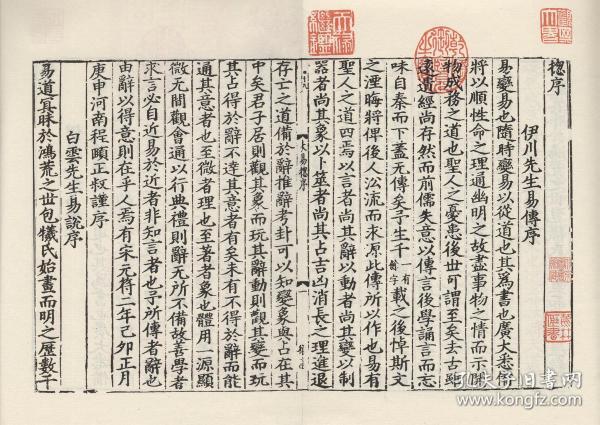 緫序
伊川先生易傳序
易變易也隨時變易以從道也其為書也廣大悉備
將以順性命之理通幽明之故盡事物之情而示開
物成務之道也聖人之憂患後世可謂至矣去古雖
遠遺經尚存然而前儒失意以傳言後學誦言而忘
味自秦而下盖無傳矣予生千有餘字載之後悼斯文
之湮晦將俾後人㳂流而求源此傳所以作也易有
聖人之道四焉以言者尚其辭以動者尚其變以制
器者尚其象以卜筮者尚其占吉凶消長之理進退
大易緫序
存亡之道備於辭推辭考卦可以知變象與占在其
中矣君子居則觀其象而玩其辭動則觀其變而玩
其占得於辭不逹其意者有矣未有不得於辭而能
通其意者也至微者理也至著者象也體用一源顯
微无間觀會通以行典禮則辭无所不備故善學者
求言必自近易於近者非知言者也予所傳者辭也
由辭以得意則在乎人焉有宋元符二年己卯正月
庚申河南程頤正叔謹序
白雲先生易説序
易道冥昧於鴻荒之世包犧氏始畫而明之歷數千
孔夫子旧书网
www.kongfz.com